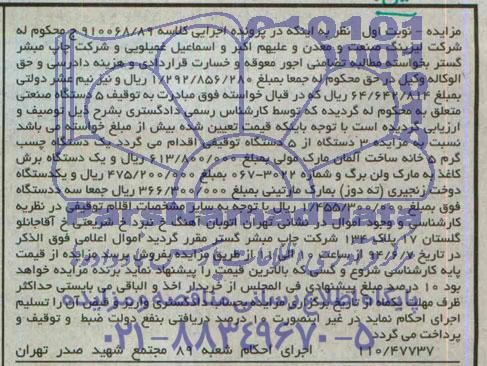 مزایده - نوبت اول - نظر به اینکه در پرونده اجرایی کلاسه ۹۱۰۰۶۸/۸۹ ج محکوم له
شرکت لیزینگ صنعت و معدن و علیهم اکبر و اسماعیل عمیلویی و شرکت چاپ مبشر
گستر بخواسته مطالبه تضامنی اجور معوقه و خسارت قراردادی و هزینه دادرسی و حق
الوکاله وکیل در حق محکوم له جمعا بمبلغ ۱/۲۹۲/۸۵۶/۲۸۰ ریال و نیز نیم عشر دولتی
بمبلغ ۶۴/۶۴۲/۸۱۴ ریال که در قبال خواسته فوق مبادرت به توقیف ۵ دستگاه صنعتی
متعلق به محکوم له گردیده که توسط کارشناس رسمی دادگستری بشرح ذیل توصیف و
ارزیابی گردیده است با توجه باینکه قیمت تعیین شده بیش از مبلغ خواسته می باشد
نسبت به مزایده ۳ دستگاه از ۵ دستگاه توقیفی اقدام می گردد یک دستگاه چسب
گرم خانه ساخت آلمان مارک مولی بمبلغ ۶۱۳/۸۰۰/۰۰۰ ریال و یک دستگاه برش
کاغذ به مارک ولن برگ و شماره ۳۰۷۲-۶۷ بمبلغ ۴۷۵/۲۰۰/۰۰۰ ریال و یکدستگاه
دوخت زنجیری (ته دوز) بمارک مارتینی بمبلغ ۳۶۶/۳۰۰/۰۰۰ ریال جمعا سه دستگاه
فوق بمبلغ ۱/۴۵۵/۳۰۰/۰۰۰ ریال با توجه به سایر مشخصات اقلام توقیفی در نظریه
کارشناسی و وجود اموال در نشانی تهران اتوبان آهنگ خ نبرد خ شریعتی خ آقاجانلو
گلستان ۱۷ پلاک ۱۳۴ شرکت چاپ مبشر گستر مقرر گردید اموال اعلامی فوق الذکر
در تاریخ ۹۲/۶/۷ از ساعت ۱۰ الی ۱۱ از طریق مزایده بفروش برسد مزایده از قیمت
پایه کارشناسی شروع و کسی که بالاترین قیمت را پیشنهاد نماید برنده مزایده خواهد
بود ۱۰ درصد مبلغ پیشنهادی فی المجلس از خریدار اخذ و الباقی می بایستی حداکثر
ظرف مهلت یکماه از تاریخ برگزاری مزایده بحساب دادگستری واریز و قبض آن را تسلیم
اجرای احکام نماید در غیر اینصورت ۱۰ درصد دریافتی بنفع دولت ضبط و توقیف و
پرداخت می گردد
۱۱۰/۴۷۷۳۷ اجرای احکام شعبه ۸۹ مجتمع شهید صدر تهران
۰۲۱-۸۸۳۴۹۶۷۰-۵